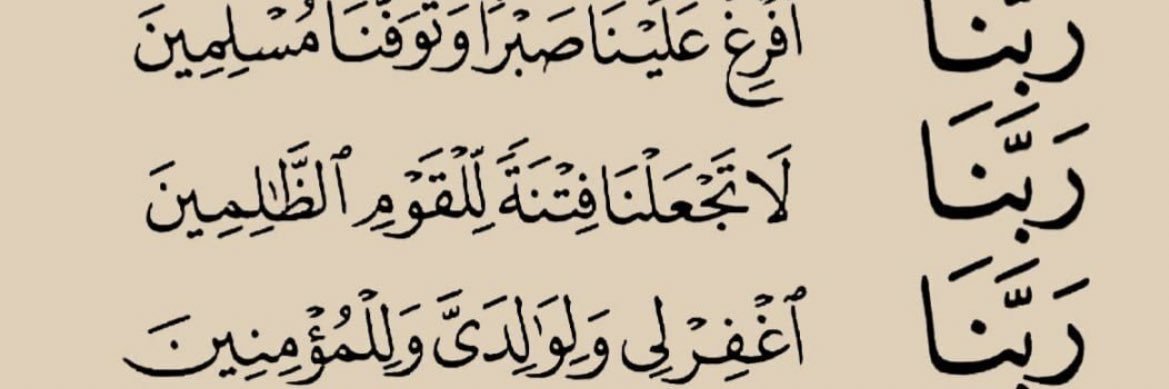 رَبَّنَا أَفْرِغْ عَلَيْنَا صَبْرًا وَتَوَفَّنَا مُسْلِمِينَ
رَبَّنَا لَا تَجْعَلْنَا فِتْنَةً لِّلْقَوْمِ ٱلظَّٰلِمِينَ
رَبَّنَا ٱغْفِرْ لِى وَلِوَٰلِدَىَّ وَلِلْمُؤْمِنِينَ